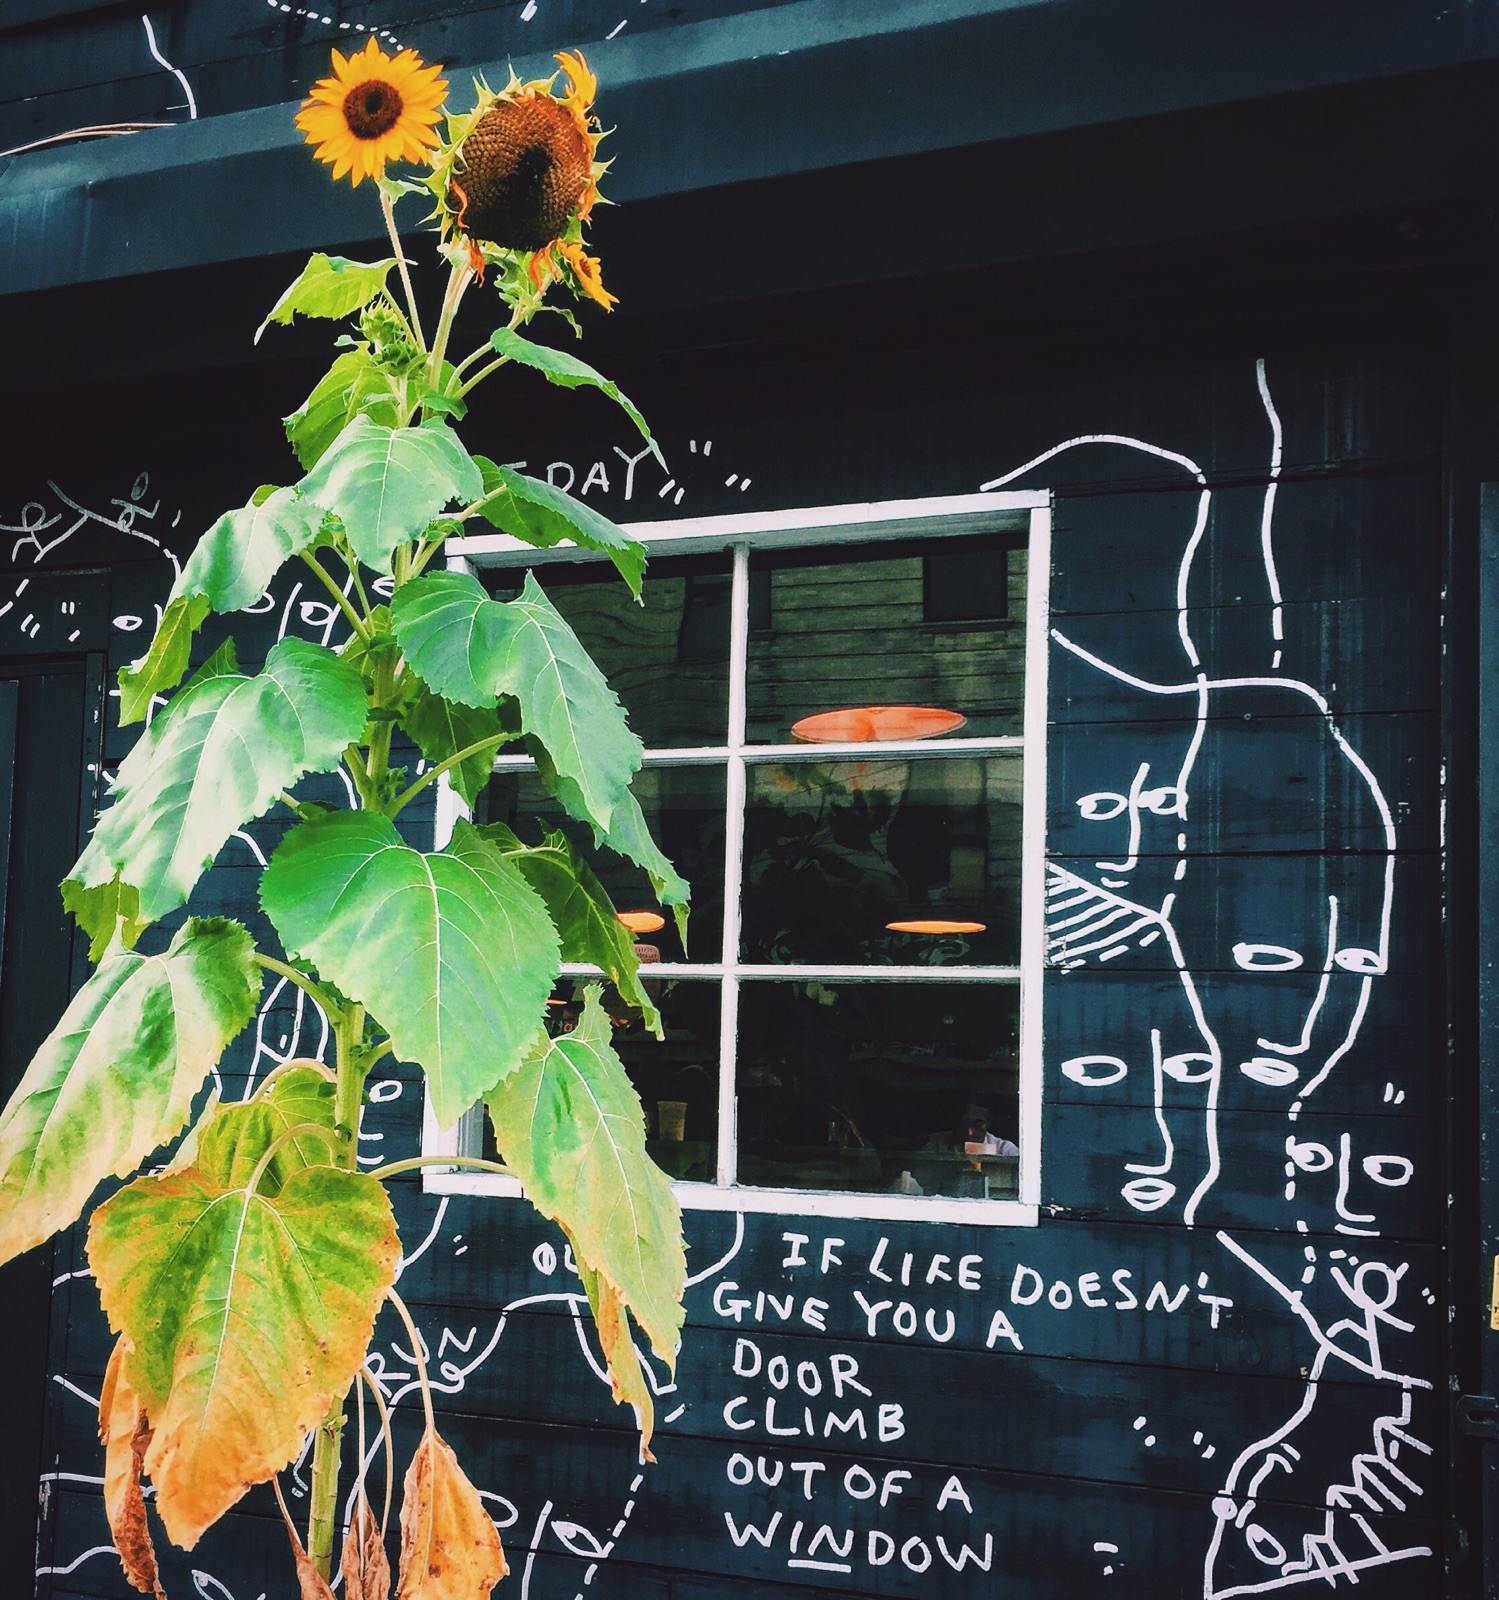 DAY
IF LIFE DOESN'T
GIVE YOU A
DOOR
CLIMB
OUT OF A
WINDOW
RUN